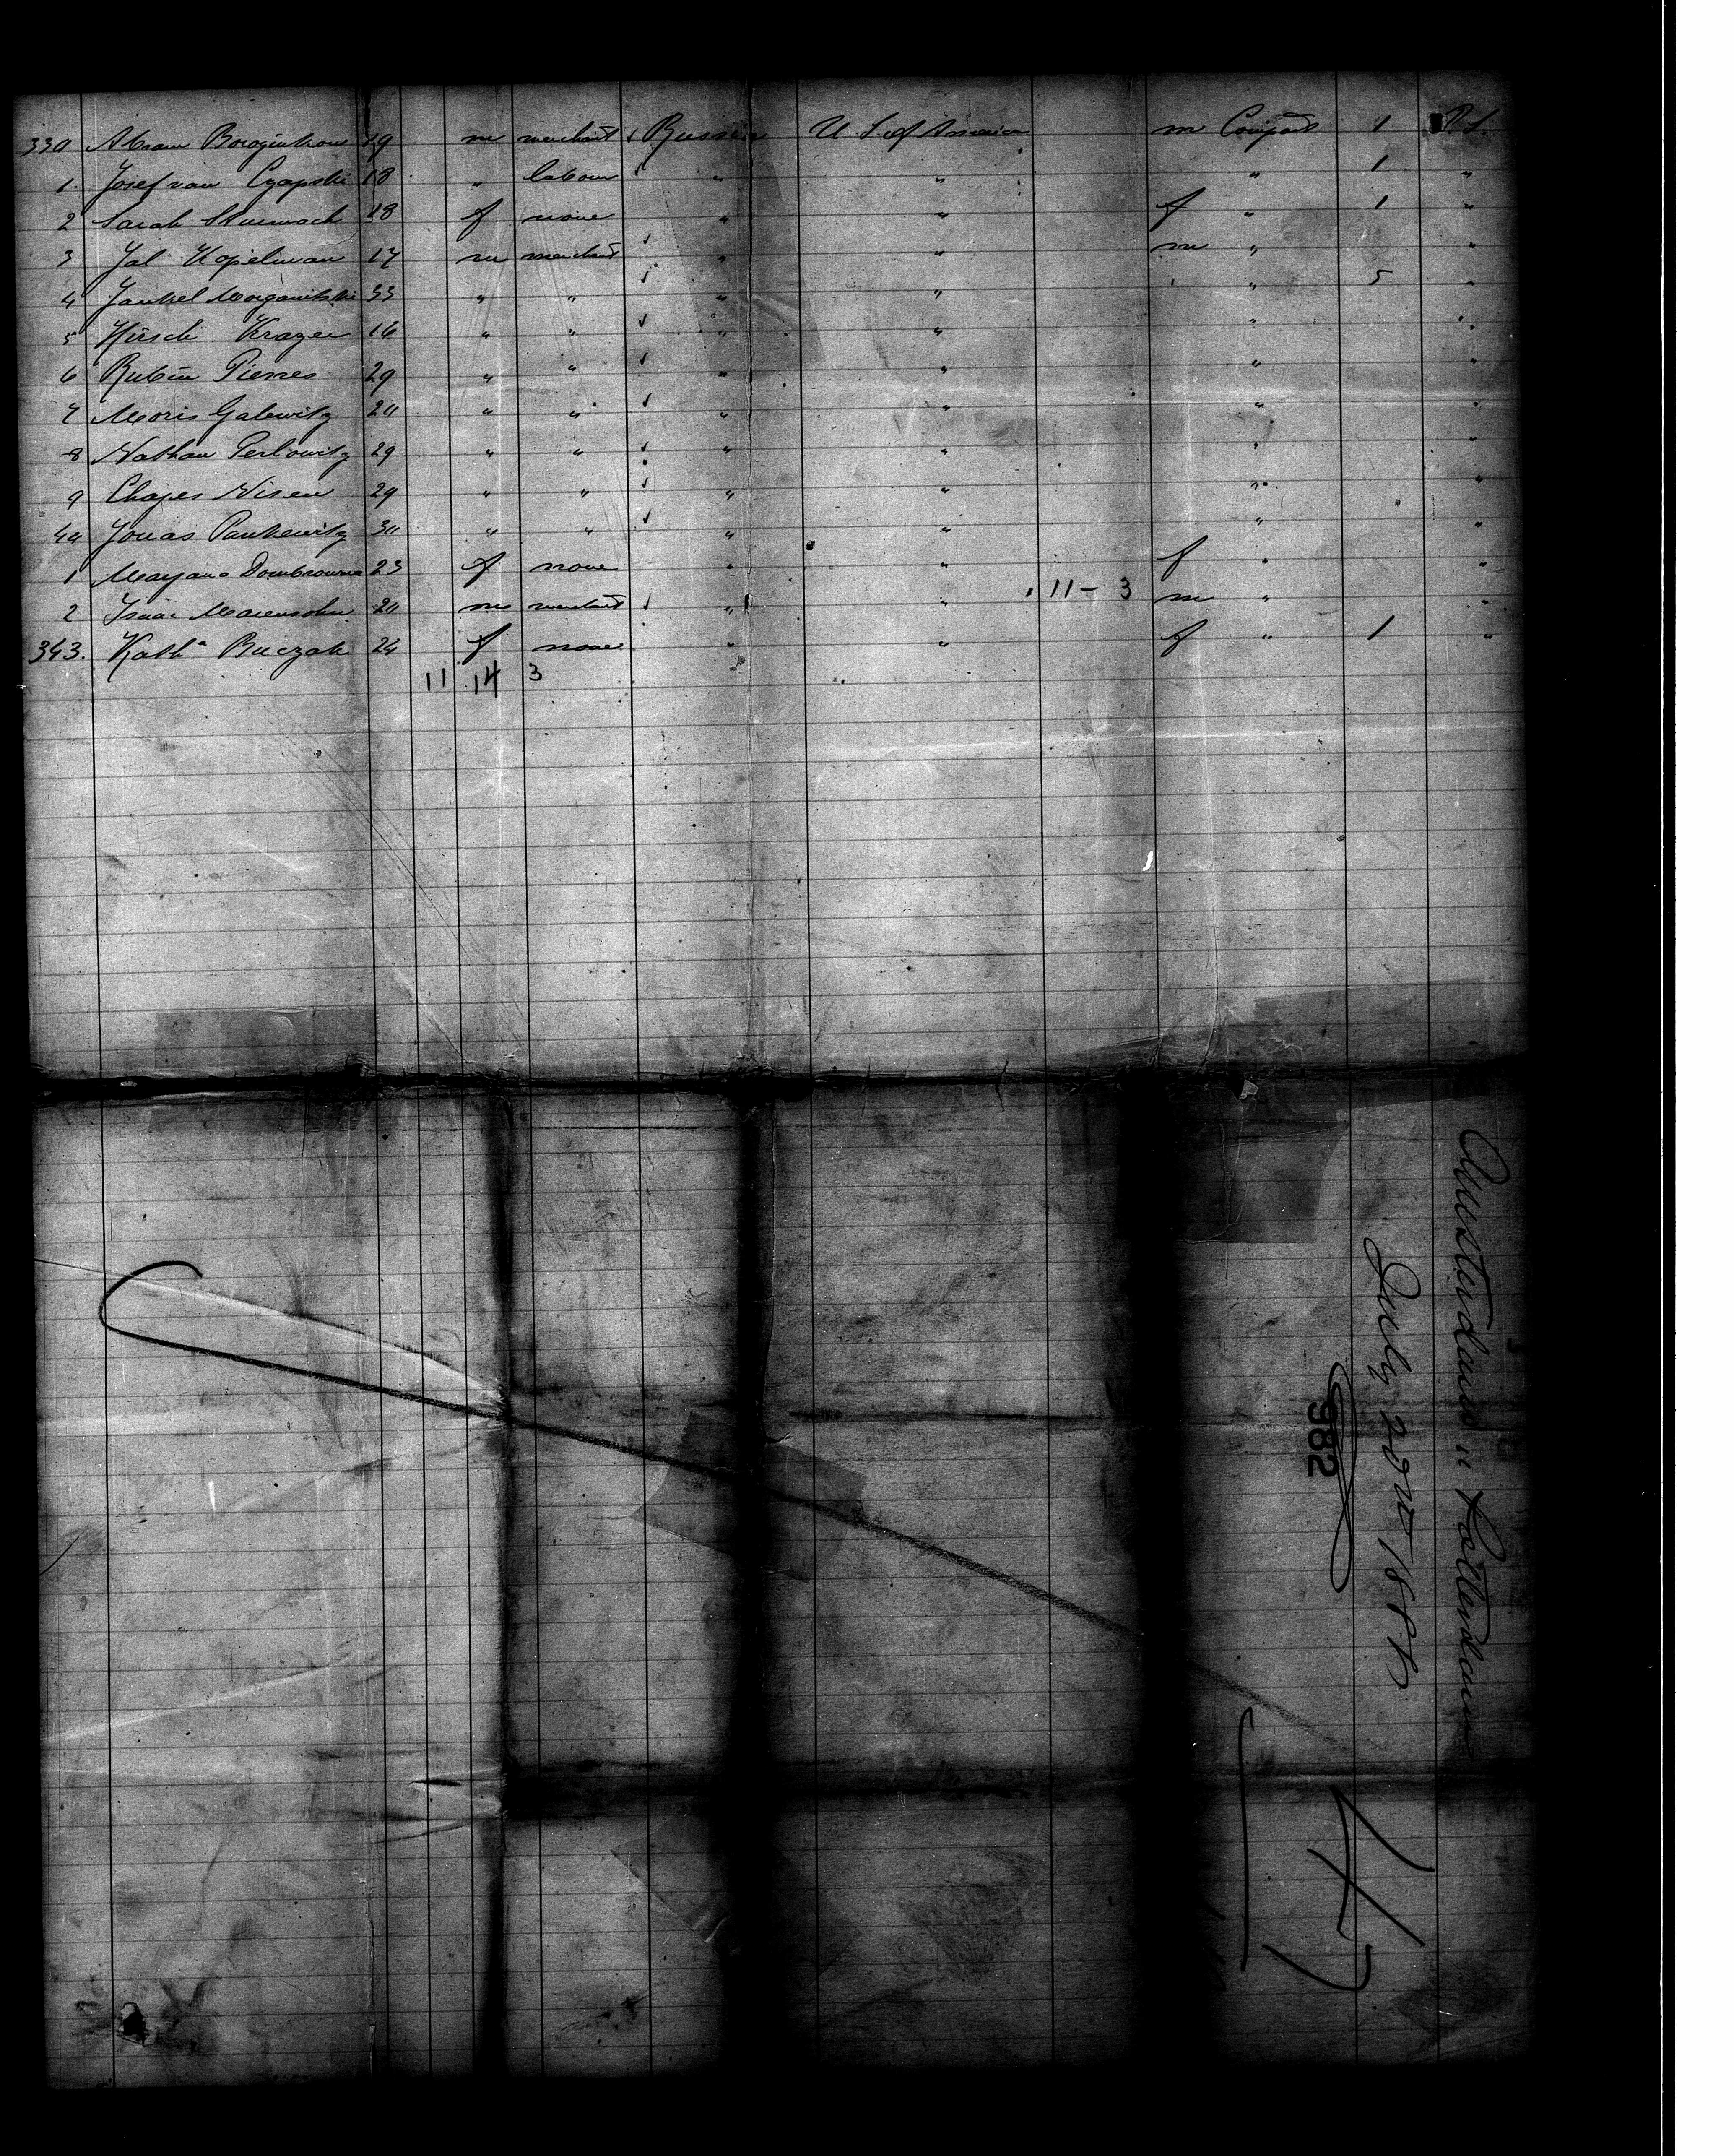 330 Abram 19 m merchant ✓ Russia U. S. of America m Compart 1 P.S.
1. Josef van Czapski 18 " labour " " " 1 "
2 Sarah 18 f none " " f " 1 "
3 Jal Kopelman 17 m merchant ✓ " " m " "
4 Jankel 33 " " ✓ " " " 5 "
5 Hirsch Krazer 16 " " ✓ " " " "
6 Rubin 29 " " ✓ " " " "
7 Moris Galewitz 20 " " ✓ " " " "
8 Nathan Perlowitz 29 " " ✓ " " " "
9 Chajes Nisen 29 " " ✓ " " " "
40 Jonas Pankewitz 30 " " ✓ " " " "
1 Maryana Dombrowna 23 f none " " f " "
2 Isaac 20 m merchant ✓ " " 11 - 3 m " "
343. Kath.a Buczak 24 f none " " f " 1 "
11 14 3
Amsterdam " Rotterdam
July 20th 188
982
47